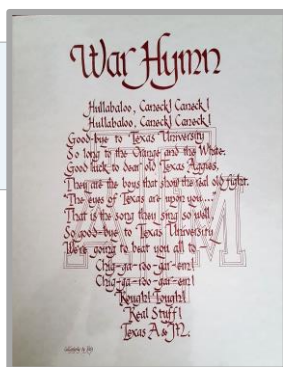 War Hymn
Hullabaloo, Caneck! Caneck!
Hullabaloo, Caneck! Caneck!
Good-bye to Texas University
So long to the Orange and the White.
Good luck to dear old Texas Aggies,
They are the boys that show the real old fight.
"The eyes of Texas are upon you...
That is the song they sing so well,
So good-bye to Texas University
We're going to beat you all to
Chig-ga-roo-gar-em!
Chig-ga-roo-gar-em!
Rough! Tough!
Real Stuff!
Texas A&M.
ATM